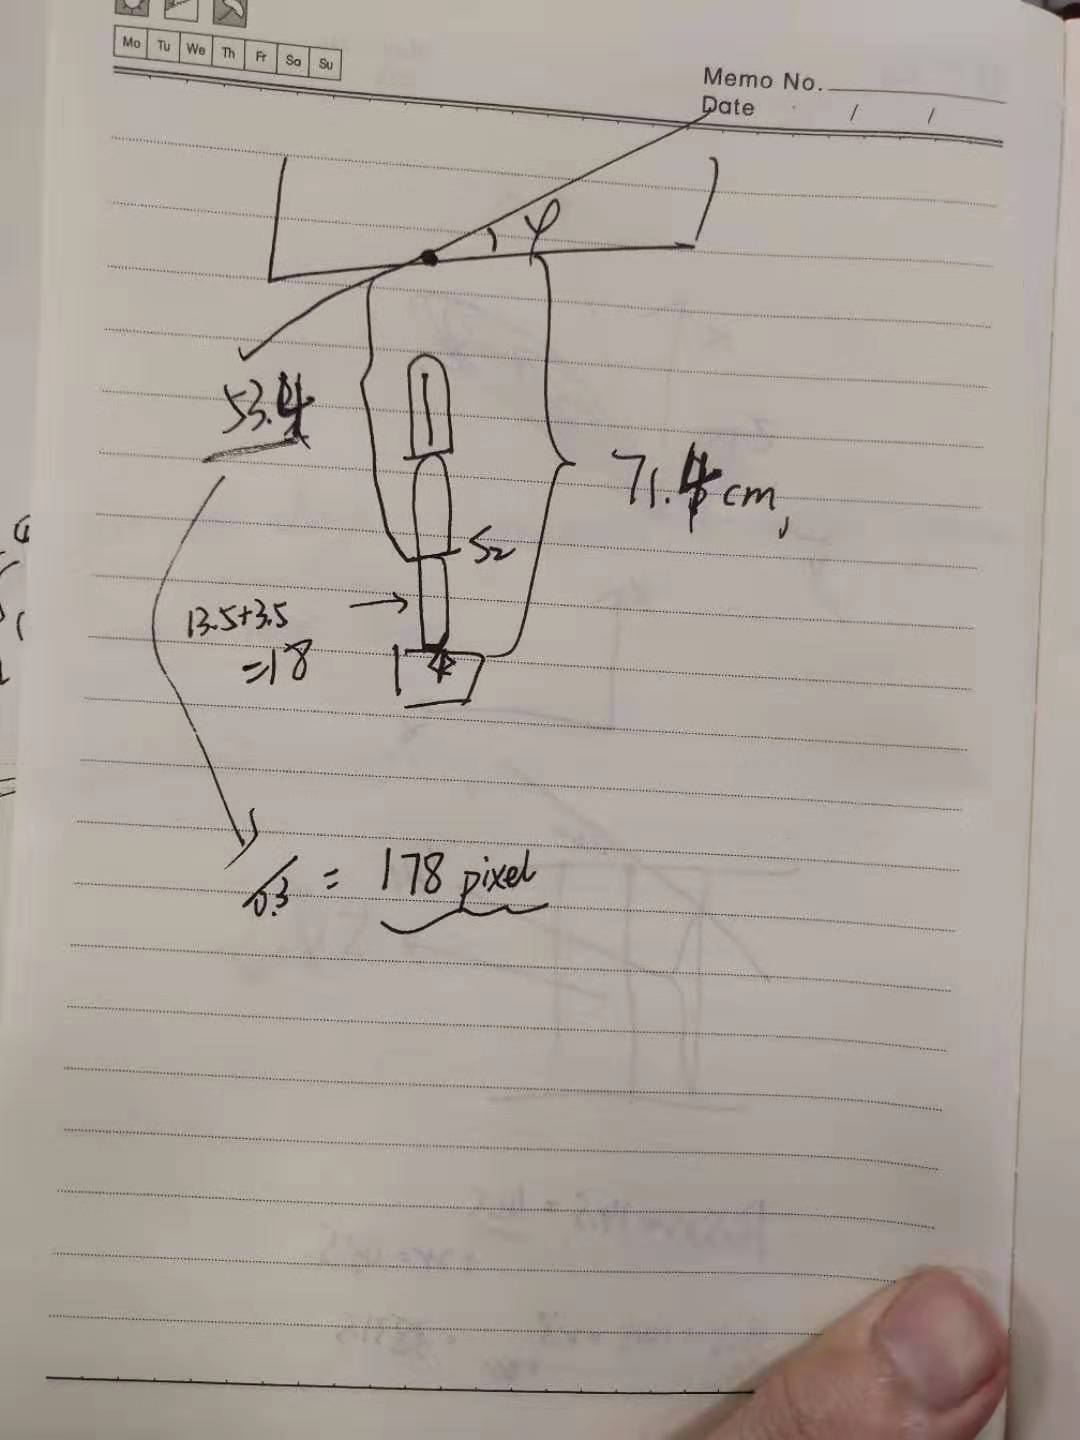 Mo Tu We Th Fr Sa Su
Memo No.
Date / /
φ
53.4
71.4 cm,
S2
13.5+3.5
=18
/0.3 = 178 pixel